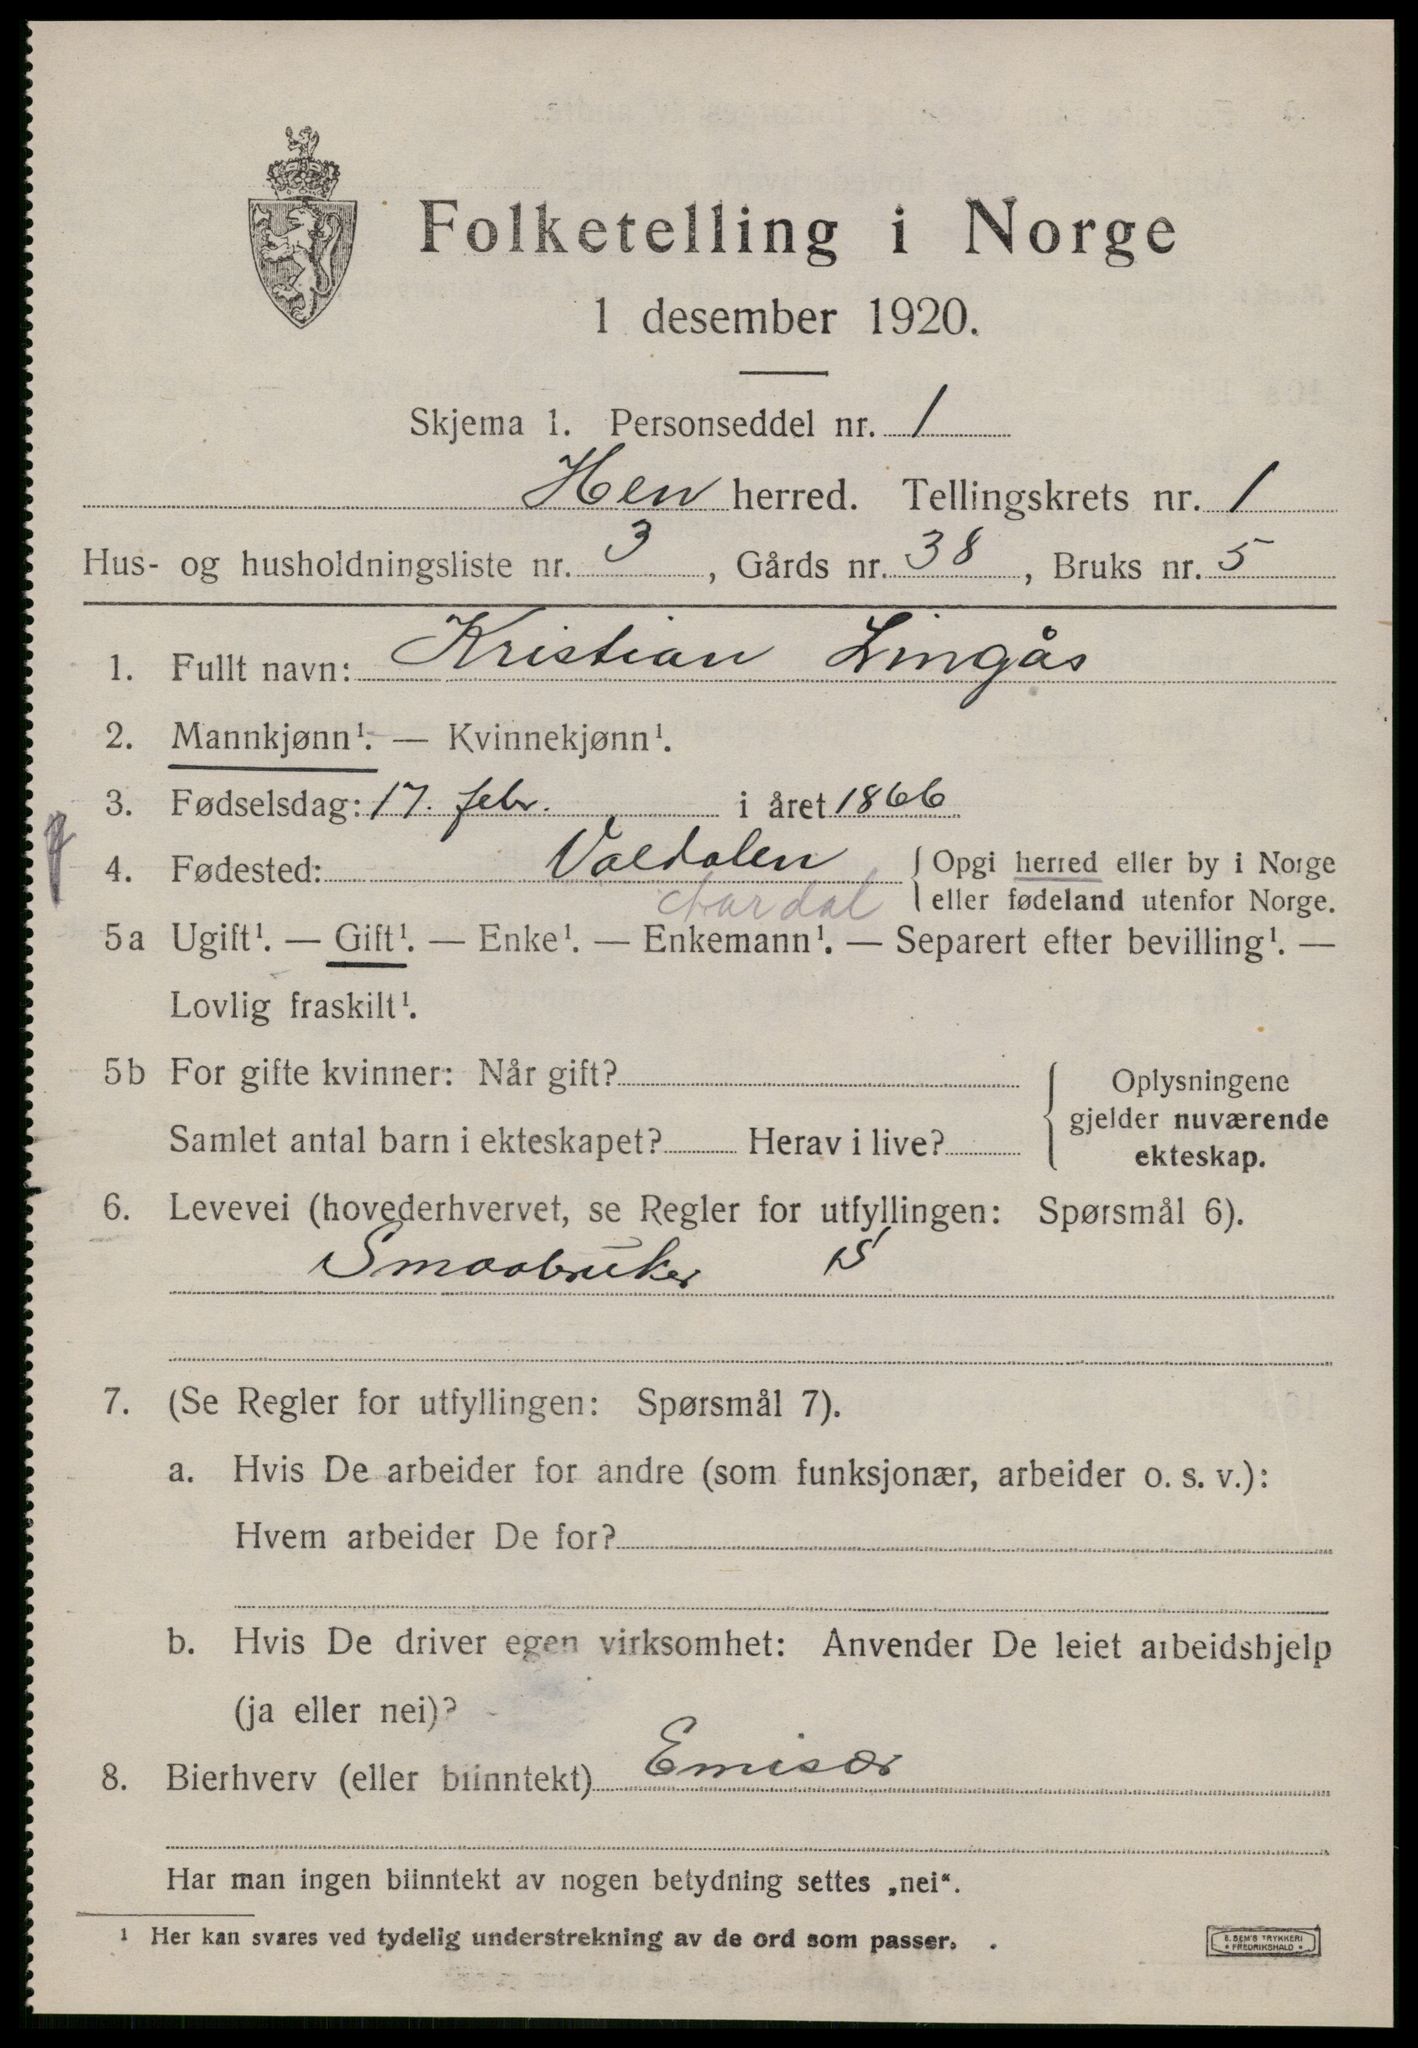 Folketelling i Norge
1 desember 1920.
Skjema 1. Personseddel nr. 1
Hen herred. Tellingskrets nr. 1
Hus- og husholdningsliste nr. 3, Gårds nr. 38, Bruks nr. 5
1. Fullt navn: Kristian Lingås
2. Mannkjønn¹. — Kvinnekjønn¹.
3. Fødselsdag: 17. febr. i året 1866
4. Fødested: Valdalen { Opgi herred eller by i Norge
eller fødeland utenfor Norge.
5a Ugift¹. — Gift¹. — Enke¹. — Enkemann¹. — Separert efter bevilling¹. —
Lovlig fraskilt¹.
5b For gifte kvinner: Når gift?
Samlet antal barn i ekteskapet? Herav i live?
{ Oplysningene
gjelder nuværende
ekteskap.
6. Levevei (hovederhvervet, se Regler for utfyllingen: Spørsmål 6).
Smaabruker S
7. (Se Regler for utfyllingen: Spørsmål 7).
a. Hvis De arbeider for andre (som funksjonær, arbeider o. s. v.):
Hvem arbeider De for?
b. Hvis De driver egen virksomhet: Anvender De leiet arbeidshjelp
(ja eller nei)?
8. Bierhverv (eller biinntekt) Emisær
Har man ingen biinntekt av nogen betydning settes „nei“.
¹ Her kan svares ved tydelig understrekning av de ord som passer.
E. SEM'S TRYKKERI
• FREDRIKSHALD •